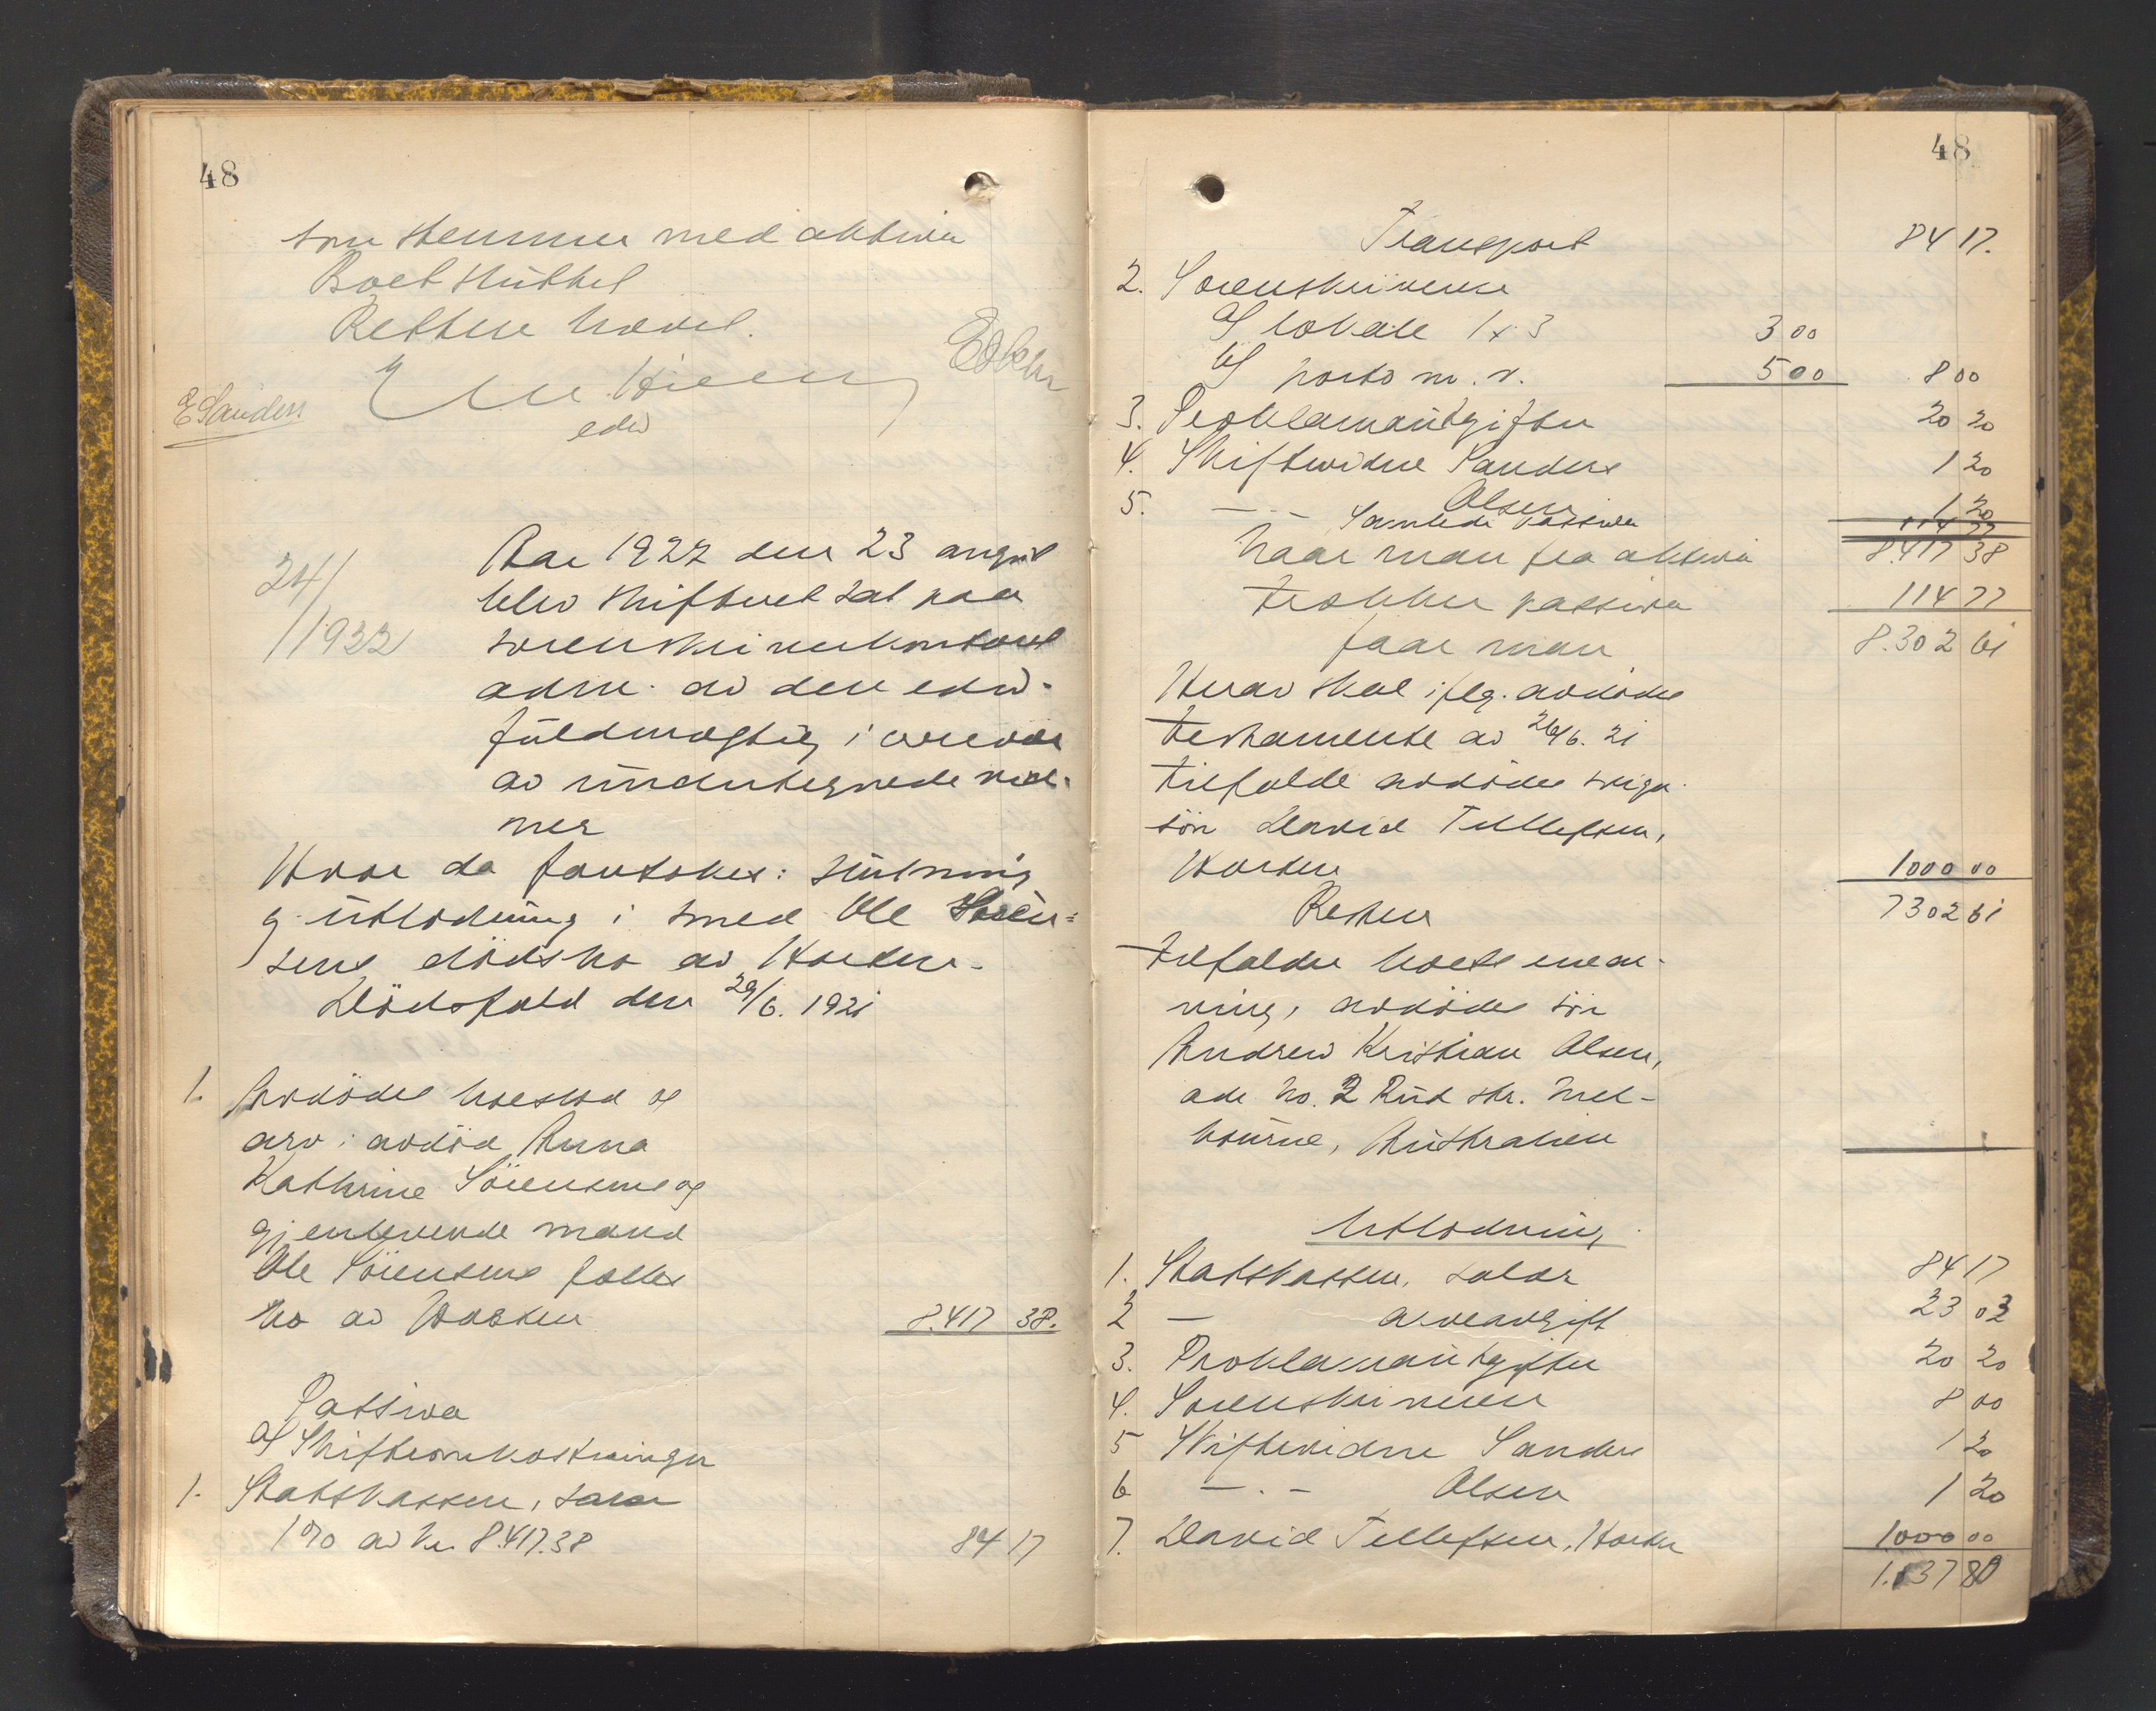 48
som stemmer med aktiva
Boet sluttet
Retten hævet.
edsv
E Sanders
24/
/1922
Aar 1922 den 23 august
blev skifteret sat paa
sorenskriverkontoret
adm. av den edsv.
fuldmægtig i overvær
av undertegnede vid-
ner
Hvor da foretokes: slutning
og utlodning i smed Ole Sören-
sens dödsbo av Horten.
Dödsfald den 29/6. 1921
1. Avdödes boeslod og
arv i avdöd Anna
Kathrine Sörensens og
gjenlevende mand
Ole Sörensens fælles
bo av Horten 8.417 38.
Passiva
a/ Skifteomkostninger
1. Statskassen, salær
1% av kr. 8.417.38 84 17
48
Transport 84 17.
2. Sorenskriveren
a/ lokale 1 x 3 3 00
b/ porto m.v. 5 00 8 00
3. Proklamautgifter 20 20
4. Skiftevidne Sanders 1 20
5. — - — Olsen 1 20
Samlede passiva 114 77
Naar man fra aktiva 8.417 38
trækker passiva 114 77
faar man 8.302 61
Herav skal iflg. avdödes
testamente av 26/6. 21
tilfalde avdödes sviger-
sön David Tellefsen,
Horten 1000 00
Resten 7302 61
tilfalder boets enear-
ving, avdödes sön
Andrew Kristian Olsen,
adr No. 2 Rud str. Mel-
bourne, Australien
Utlodning
1. Statskassen, salær 84 17
2 — arveavgift 23 03
3. Proklamautgifter 20 20
4. Sorenskriveren 8 00
5 Skiftevidne Sanders 1 20
6 — . — Olsen 1 20
7. David Tellefsen, Horten 1000 00
1.137 80